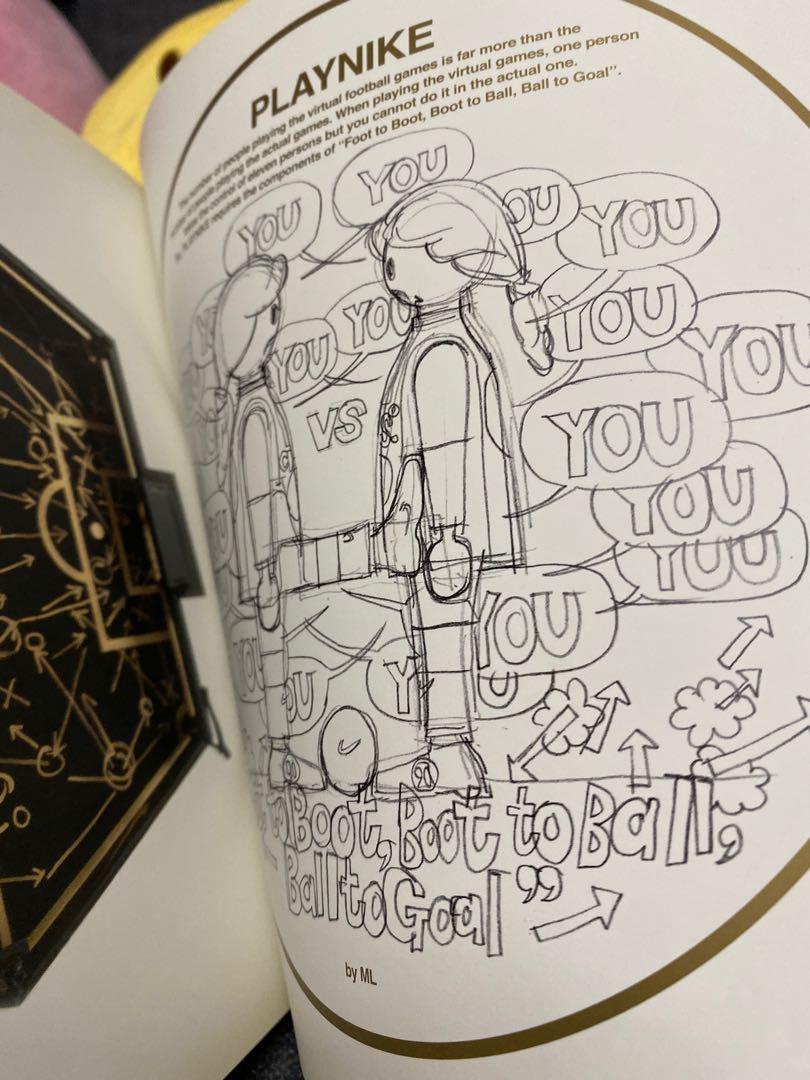 PLAYNIKE
The number of people playing the virtual football games is far more than the
people playing the actual games. When playing the virtual games, one person
the control of eleven persons but you cannot do it in the actual one.
requires the components of "Foot to Boot, Boot to Ball, Ball to Goal".
YOU
YOU
YOU
YOU
YOU
YOU
YOU
YOU
VS
YOU
YOU
YOU
YOU
to Boot, Boot to Ball,
Ball to Goal"
by ML